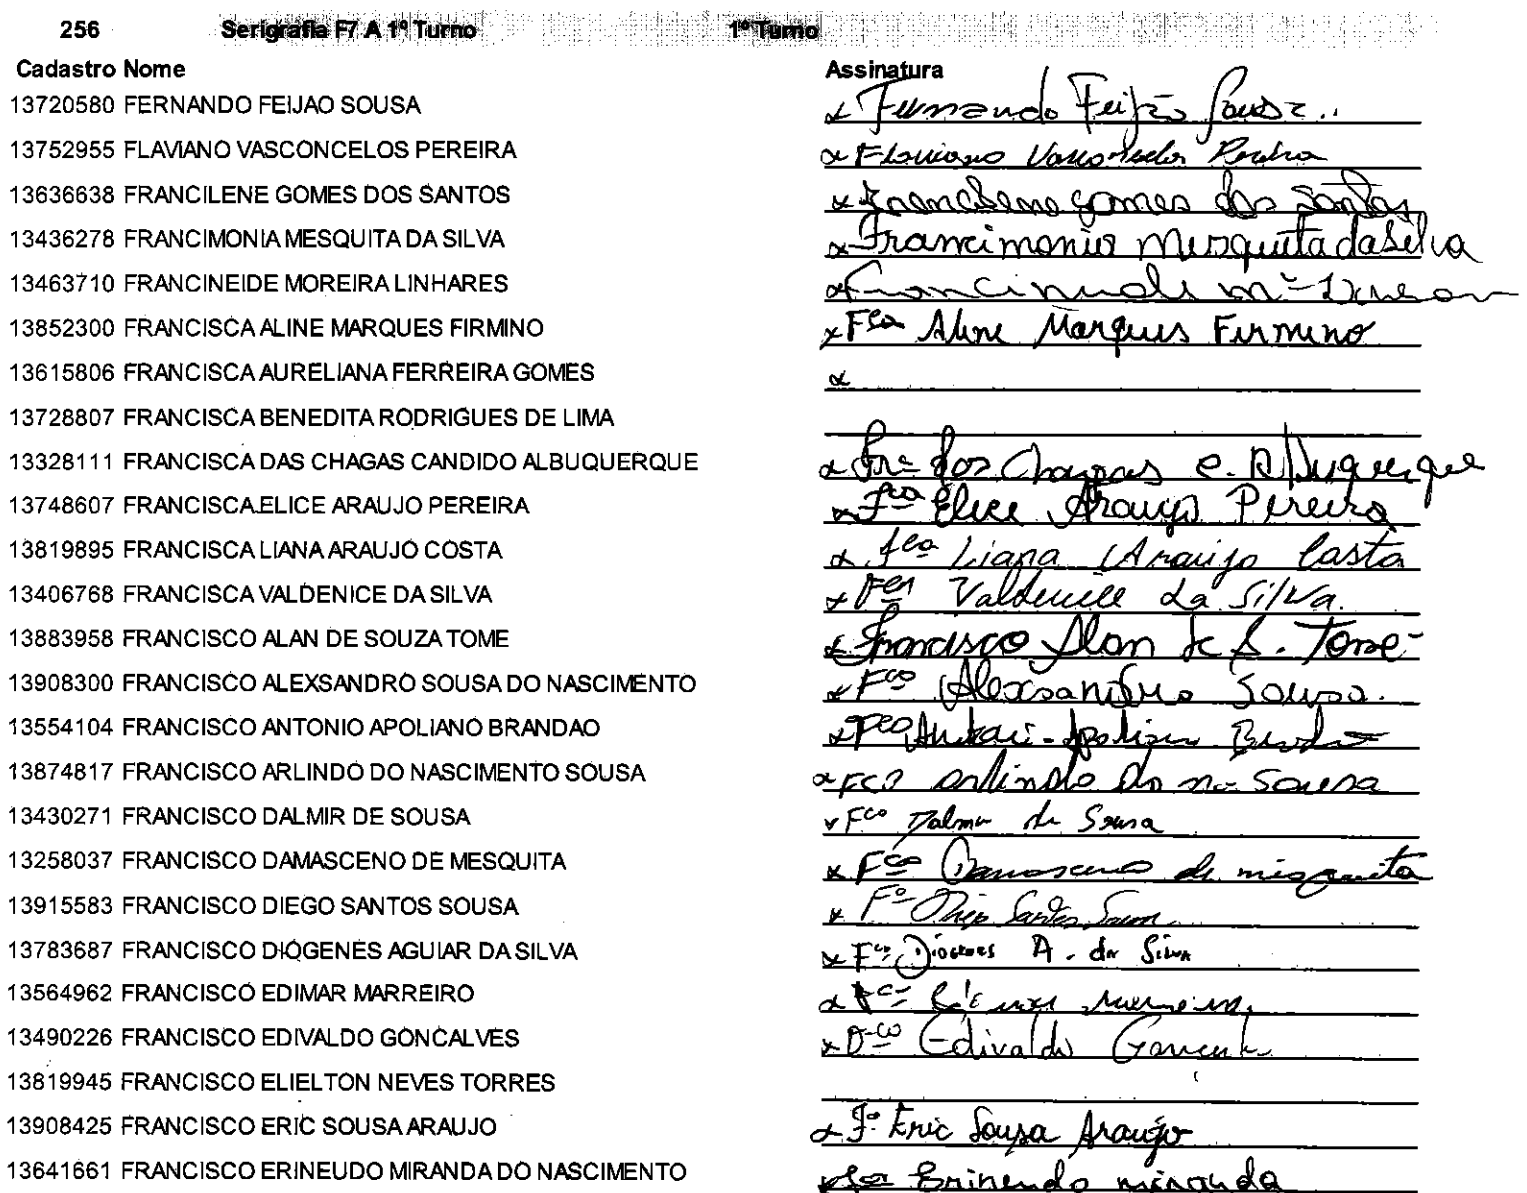 256 Serigrafia F7 A 1º Turno 1º Turno
Cadastro Nome Assinatura
13720580 FERNANDO FEIJAO SOUSA Fernando Feijão Sousa
13752955 FLAVIANO VASCONCELOS PEREIRA Flaviano Vasconcelos Pereira
13636638 FRANCILENE GOMES DOS SANTOS Francilene gomes dos Santos
13436278 FRANCIMONIA MESQUITA DA SILVA Francimonia Mesquita da Silva
13463710 FRANCINEIDE MOREIRA LINHARES
13852300 FRANCISCA ALINE MARQUES FIRMINO Fca Aline Marques Firmino
13615806 FRANCISCA AURELIANA FERREIRA GOMES
13728807 FRANCISCA BENEDITA RODRIGUES DE LIMA
13328111 FRANCISCA DAS CHAGAS CANDIDO ALBUQUERQUE Chagas C. Albuquerque
13748607 FRANCISCA ELICE ARAUJO PEREIRA Fca Elice Araujo Pereira
13819895 FRANCISCA LIANA ARAUJO COSTA fca Liana Araujo Costa
13406768 FRANCISCA VALDENICE DA SILVA Valdenice da Silva
13883958 FRANCISCO ALAN DE SOUZA TOME Francisco Alan de S. Tomé
13908300 FRANCISCO ALEXSANDRO SOUSA DO NASCIMENTO Fco Alexsandro Sousa
13554104 FRANCISCO ANTONIO APOLIANO BRANDAO Fco
13874817 FRANCISCO ARLINDO DO NASCIMENTO SOUSA Fco arlindo do n. Sousa
13430271 FRANCISCO DALMIR DE SOUSA Fco Dalmir de Sousa
13258037 FRANCISCO DAMASCENO DE MESQUITA Fco Damasceno de misquita
13915583 FRANCISCO DIEGO SANTOS SOUSA Fº Diego Santos Sousa
13783687 FRANCISCO DIOGENES AGUIAR DA SILVA Fco Diogenes A. da Silva
13564962 FRANCISCO EDIMAR MARREIRO
13490226 FRANCISCO EDIVALDO GONCALVES Edivaldo
13819945 FRANCISCO ELIELTON NEVES TORRES
13908425 FRANCISCO ERIC SOUSA ARAUJO Fº Eric Sousa Araujo
13641661 FRANCISCO ERINEUDO MIRANDA DO NASCIMENTO Erineudo miranda